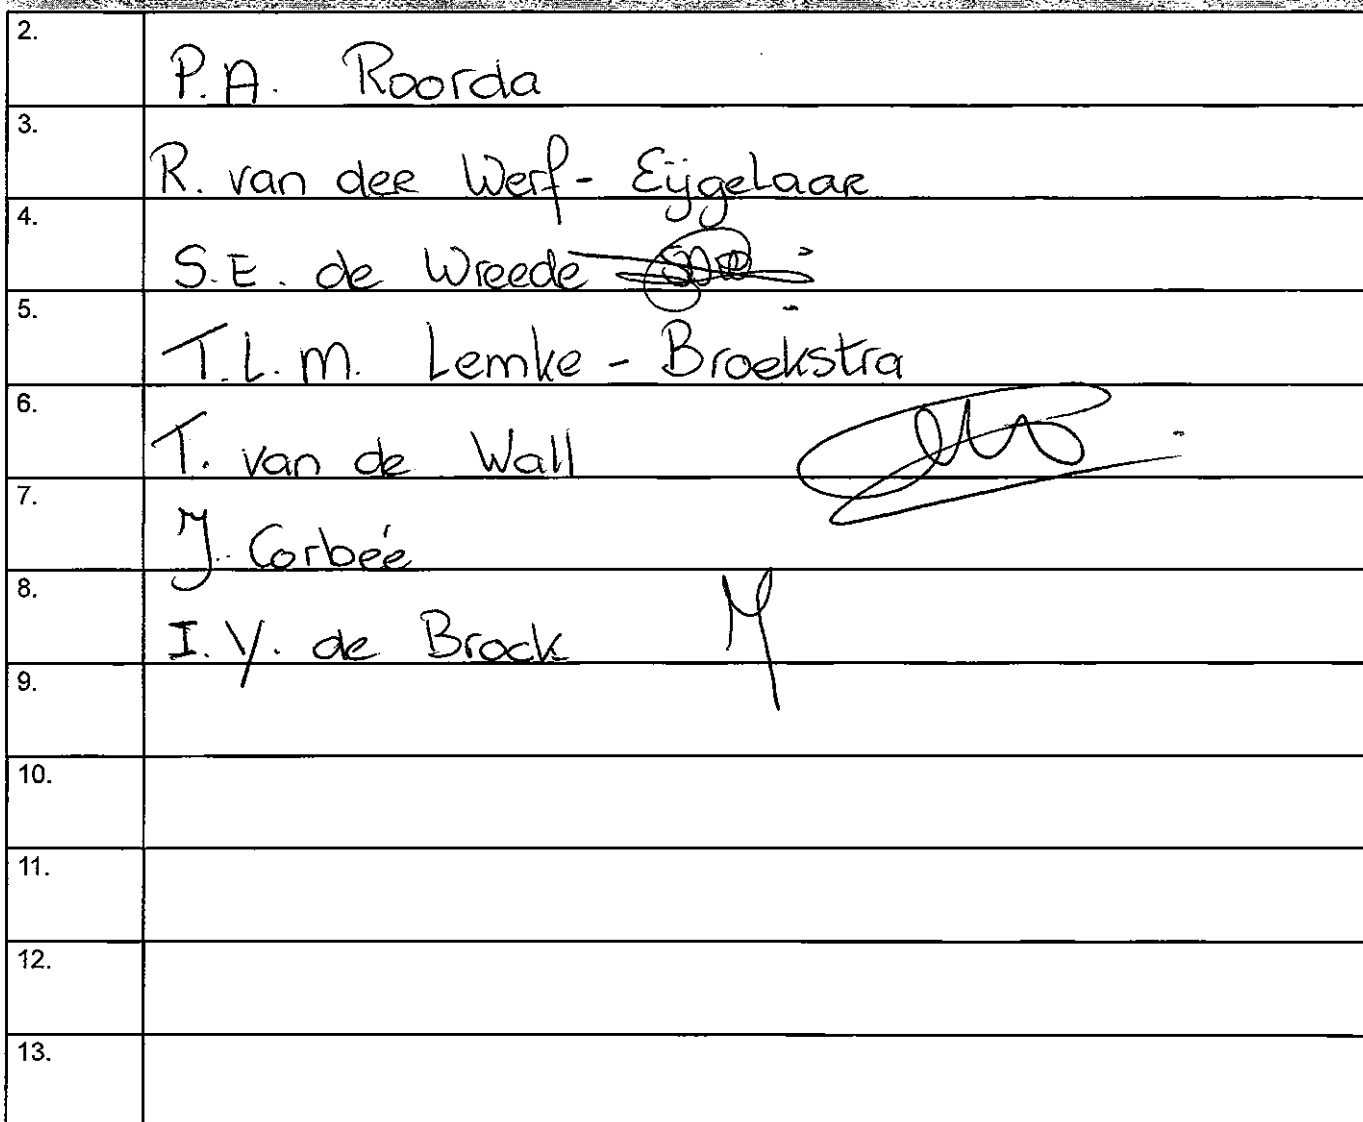 2.
P.A. Roorda
3.
R. van der Werf - Eijgelaar
4.
S.E. de Wreede
5.
T.L.M. Lemke - Broekstra
6.
T. van de Wall
7.
J. Corbée
8.
I.Y. de Brock
9.
10.
11.
12.
13.